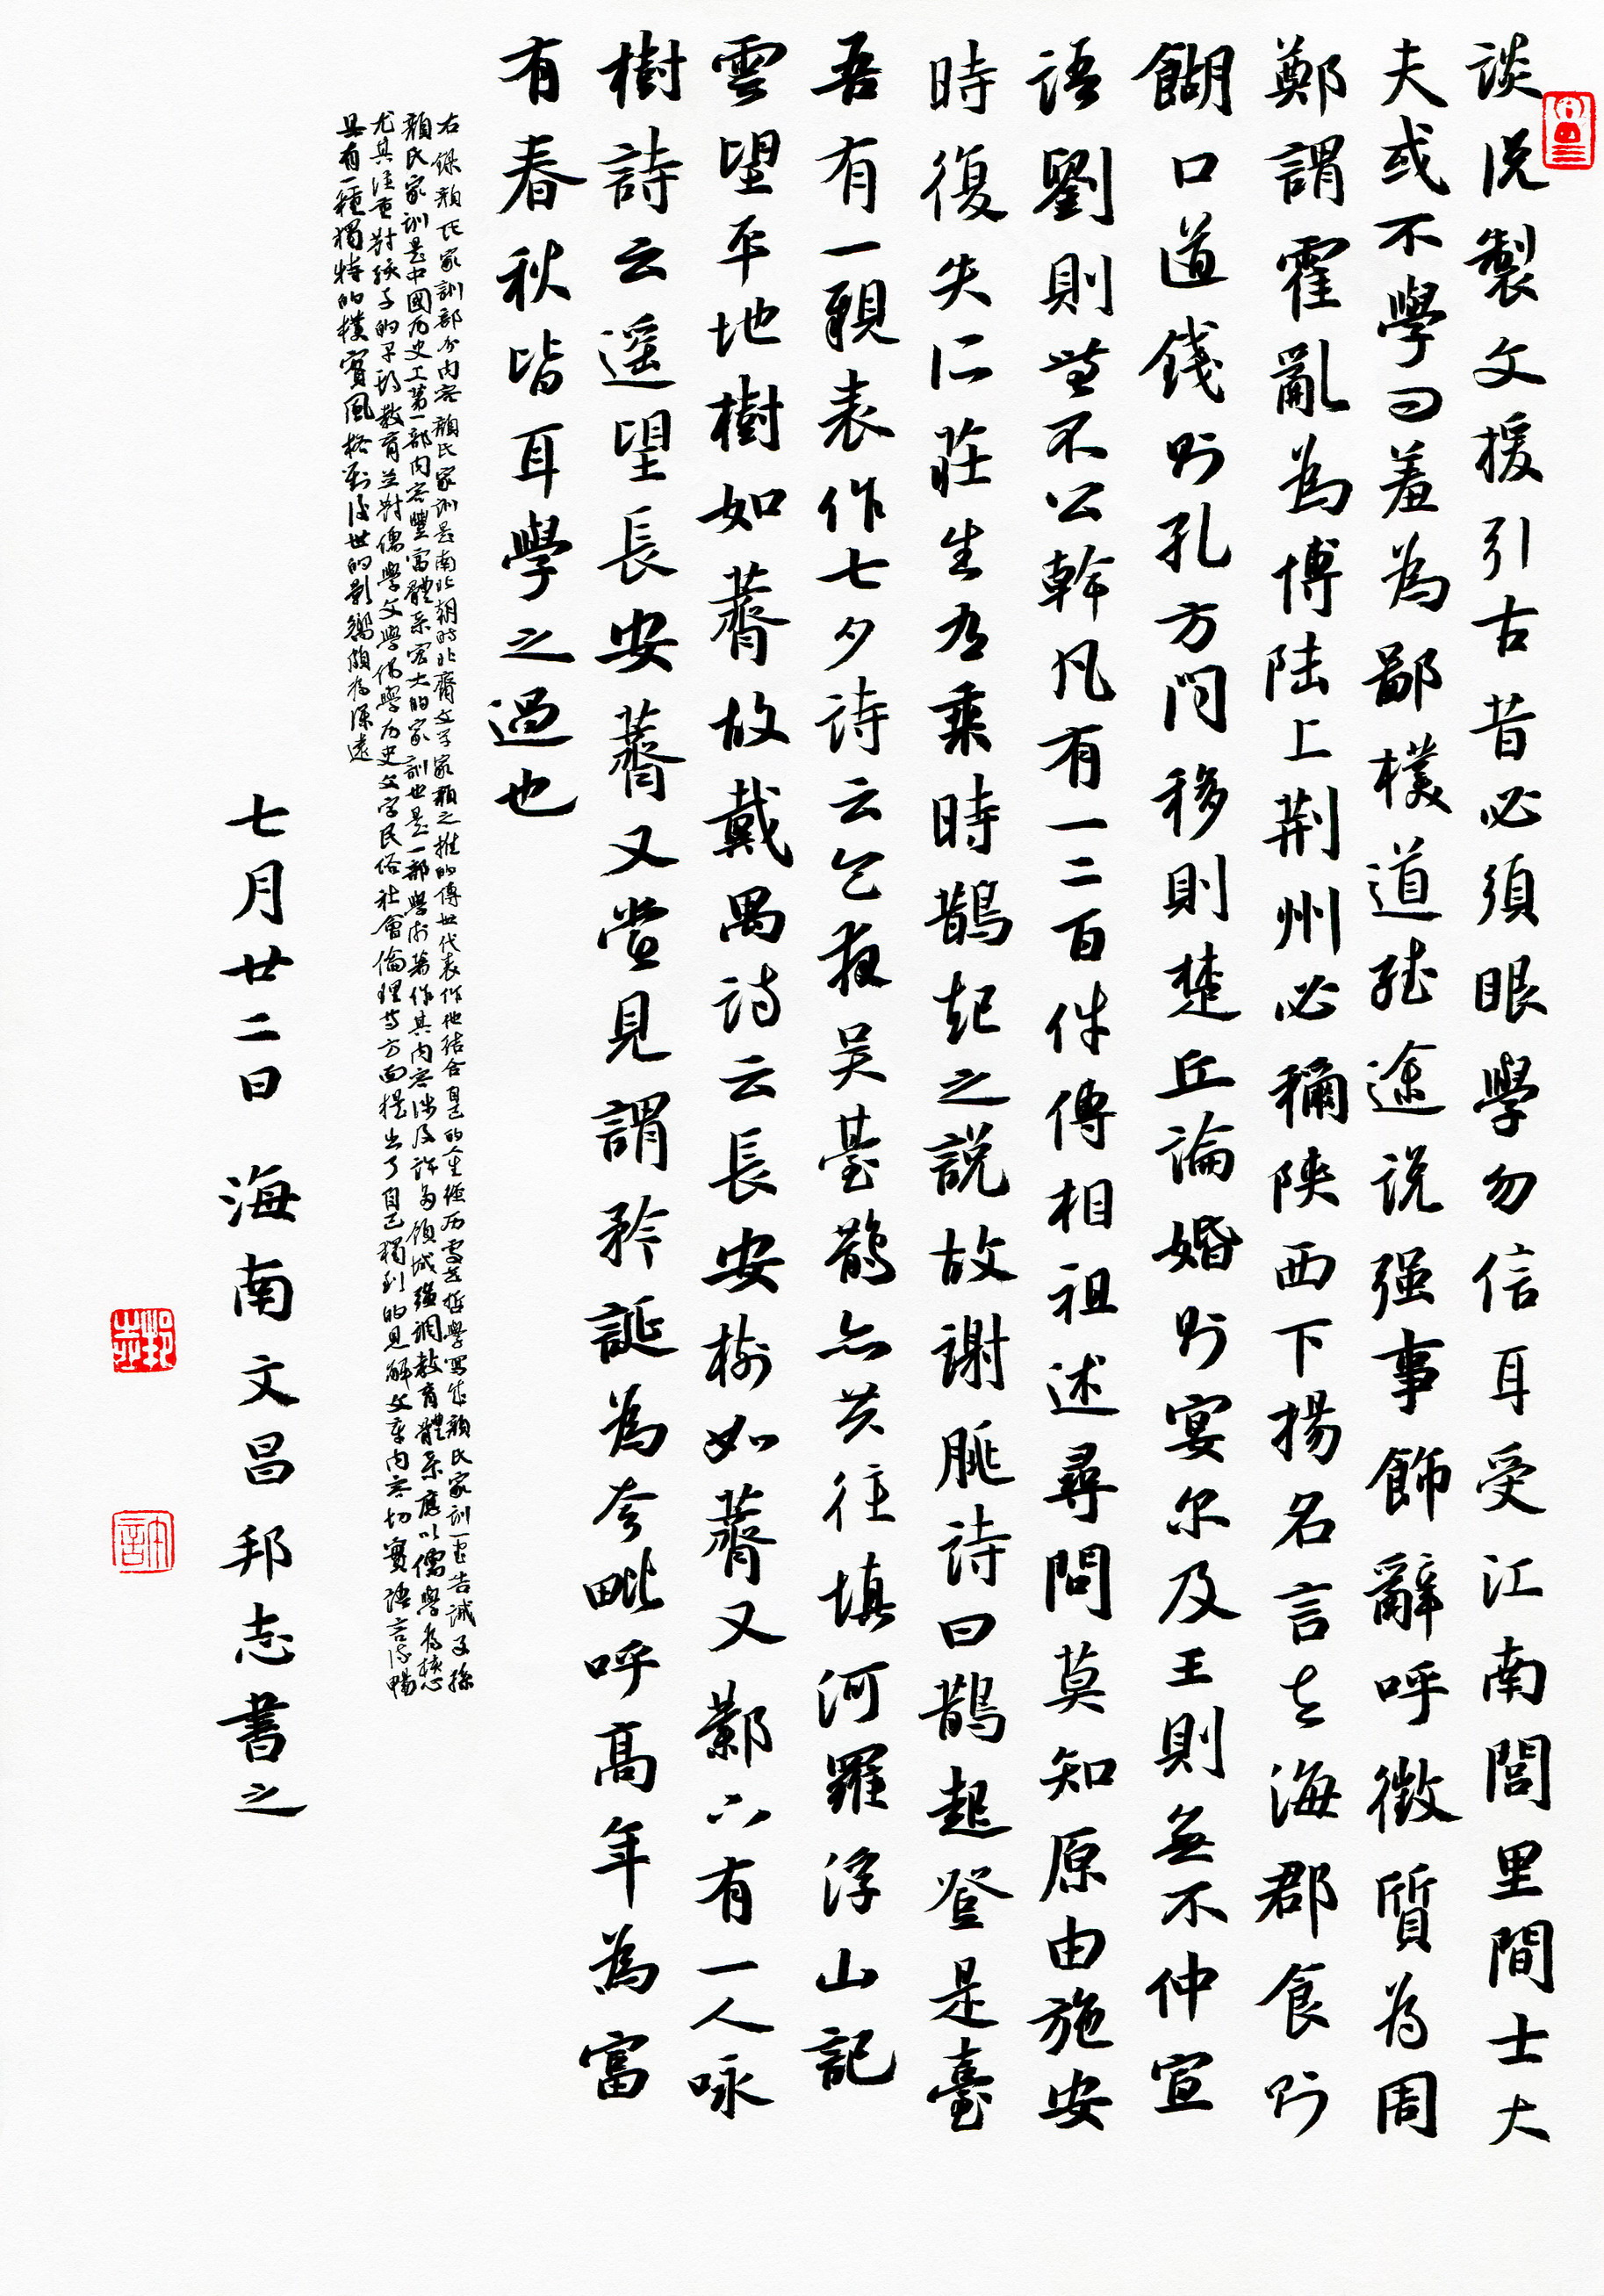 談说製文援引古昔必須眼學勿信耳受江南閭里間士大
夫或不學曰羞為鄙樸道聽途说强事飾辭呼徵質為周
鄭謂霍亂為博陸上荆州必稱陝西下揚名言去海郡食則
餬口道錢則孔方問移則楚丘論婚則宴尔及王則無不仲宣
語劉則無不公幹凡有一二百件傳相祖述尋問莫知原由施安
時復失所莊生有乘時鵲起之説故謝朓詩曰鵲起登是臺
吾有一親表作七夕詩云今夜吴臺鵲亦共往填河羅浮山記
雲望平地樹如薺故戴暠詩云長安樹如薺又鄴下有一人咏
樹詩云遥望長安薺又嘗見謂矜誕為夸毗呼高年為富
有春秋皆耳學之過也
右録顔氏家訓部分内容顔氏家訓是南北朝時北齊文学家顔之推的傳世代表作他結合自己的人生經历處世哲學寫成顔氏家訓一書告誡子孫
顔氏家訓是中國历史上第一部内容豐富體系宏大的家訓也是一部學術著作其内容涉及許多領域强調教育體系應以儒學為核心
尤其注重對孩子的早期教育并對儒學文學佛學历史文字民俗社會倫理等方面提出了自己獨到的見解文章内容切實語言流暢
具有一種獨特的樸實風格對後世的影響頗為深遠
七月廿二日 海南文昌邦志書之